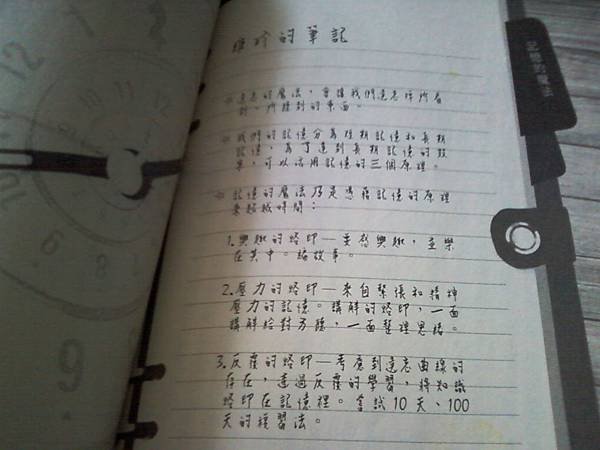 維珍的筆記
遺忘的魔法，會讓我們遺忘掉所看
到、所接到的東西。
我們的記憶分為短期記憶和長期
記憶，為了達到長期記憶的效
果，可以活用記憶的三個原理。
記憶的魔法乃是憑藉記憶的原理
來超越時間：
1.興趣的烙印—要有興趣，並樂
在其中。編故事。
2.壓力的烙印—來自緊張和精神
壓力的記憶。講解的烙印，一面
講解給對方聽，一面整理思緒。
3.反覆的烙印—考慮到遺忘曲線的
存在，透過反覆的學習，將知識
烙印在記憶裡。嘗試10天、100
天的複習法。
記憶的魔法
12
1
2
3
4
5
6
8
9
10